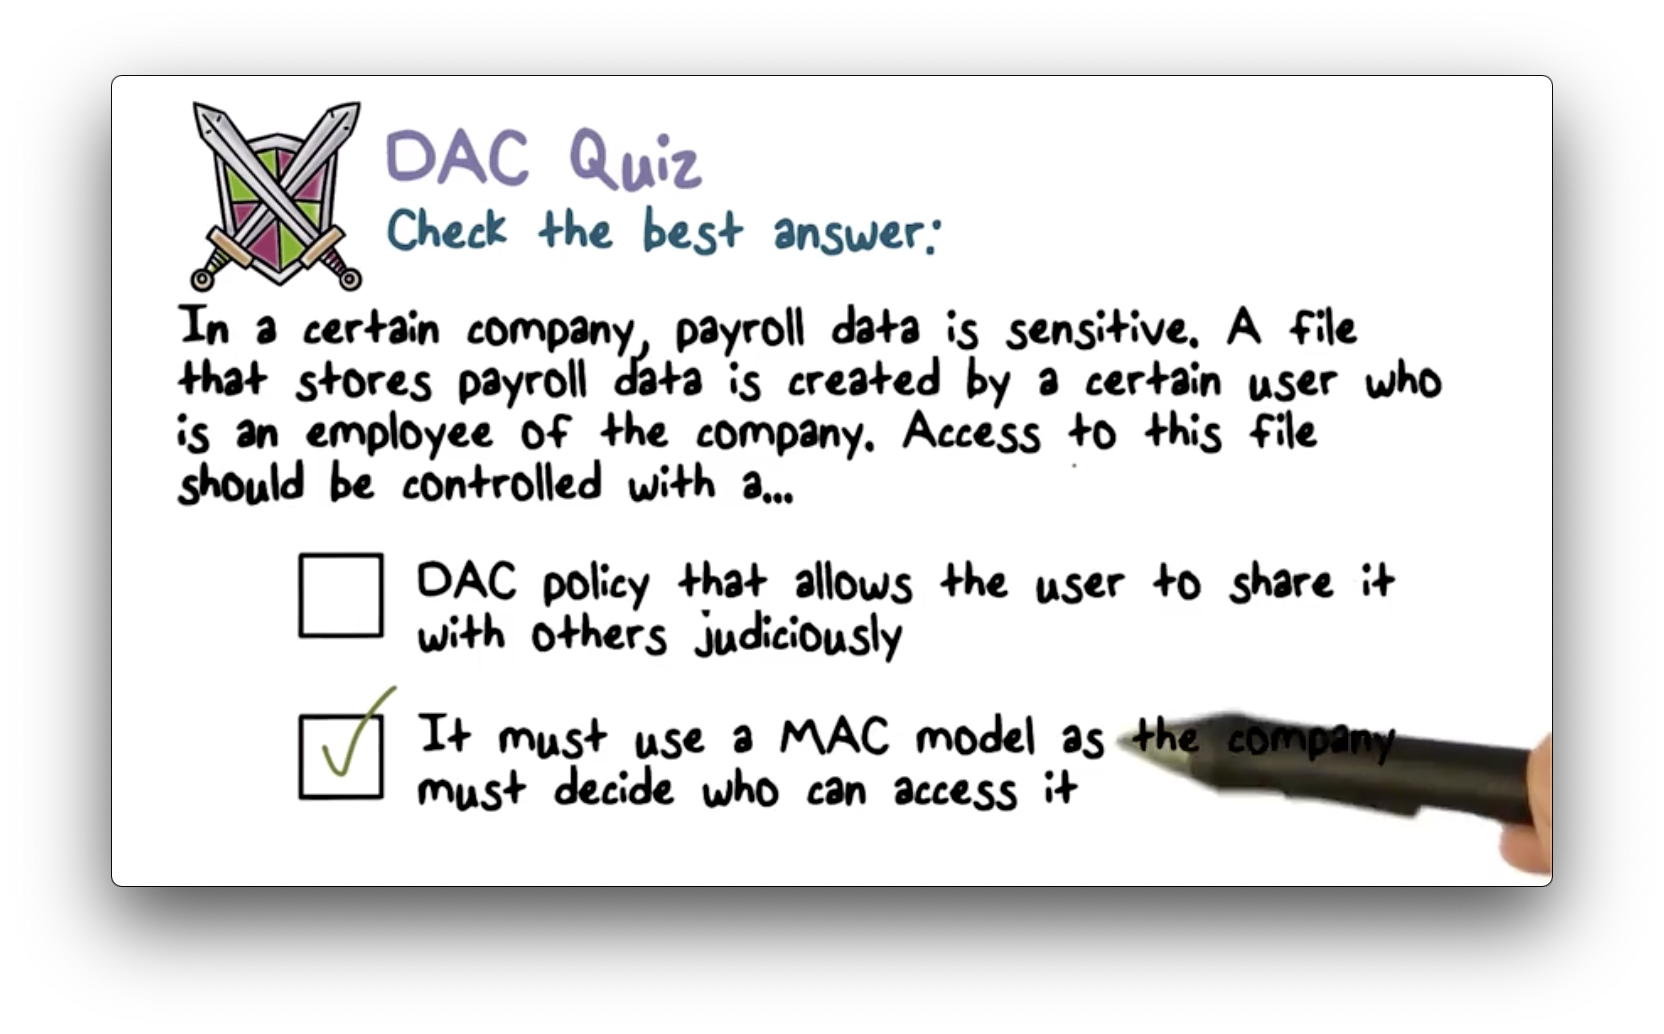 DAC Quiz
Check the best answer:
In a certain company, payroll data is sensitive. A file
that stores payroll data is created by a certain user who
is an employee of the company. Access to this file
should be controlled with a...
DAC policy that allows the user to share it
with others judiciously
It must use a MAC model as the company
must decide who can access it